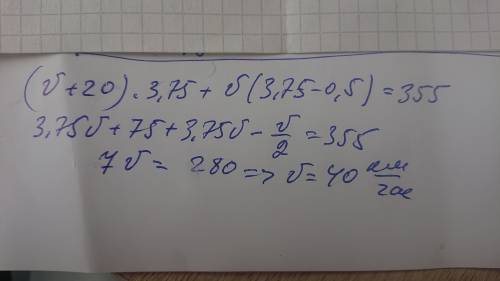 (v+20)·3,75+v(3,75-0,5)=355
3,75v+75+3,75v-v/2=355
7v=280=>v=40 км/час